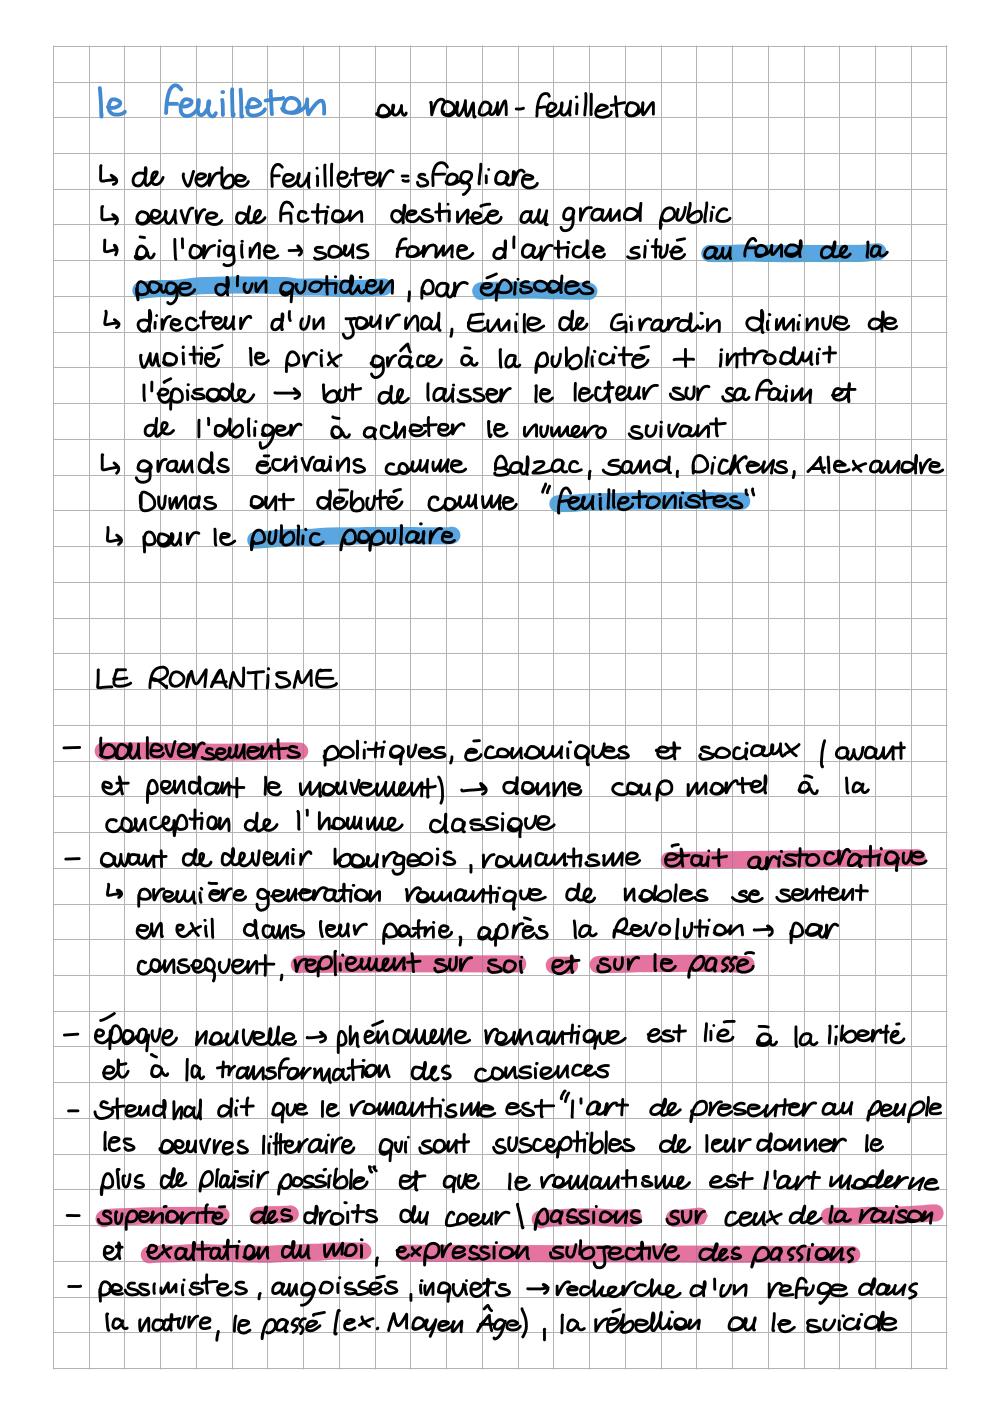 le feuilleton ou roman-feuilleton
↳ de verbe feuilleter = sfogliare
↳ oeuvre de fiction destinée au grand public
↳ à l'origine → sous forme d'article situé au fond de la
page d'un quotidien, par épisodes
↳ directeur d'un journal, Emile de Girardin diminue de
moitié le prix grâce à la publicité + introduit
l'épisode → but de laisser le lecteur sur sa faim et
de l'obliger à acheter le numero suivant
↳ grands écrivains comme Balzac, Sand, Dickens, Alexandre
Dumas ont débuté comme "feuilletonistes"
↳ pour le public populaire
LE ROMANTISME
- bouleversements politiques, économiques et sociaux (avant
et pendant le mouvement) → donne coup mortel à la
conception de l'homme classique
- avant de devenir bourgeois, romantisme était aristocratique
↳ première generation romantique de nobles se sentent
en exil dans leur patrie, après la Revolution → par
consequent, repliement sur soi et sur le passé
- époque nouvelle → phénomene romantique est lié à la liberté
et à la transformation des consiences
- Stendhal dit que le romantisme est "l'art de presenter au peuple
les oeuvres litteraire qui sont susceptibles de leur donner le
plus de plaisir possible" et que le romantisme est l'art moderne
- superiorité des droits du coeur \ passions sur ceux de la raison
et exaltation du moi, expression subjective des passions
- pessimistes, angoissés, inquiets → recherche d'un refuge dans
la nature, le passé (ex. Moyen Âge), la rébellion ou le suicide